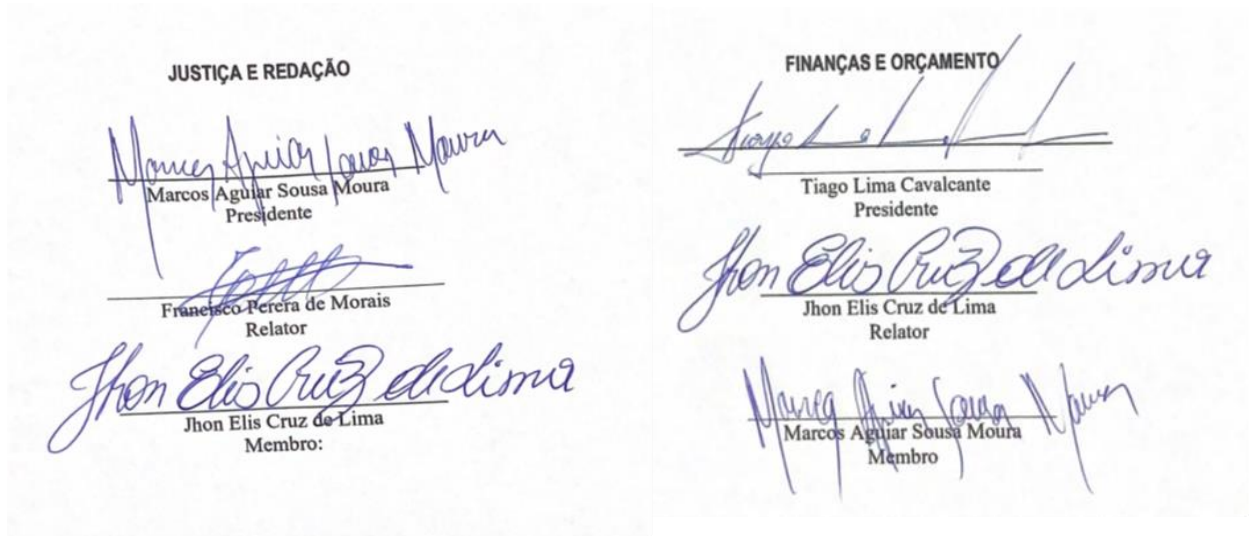 JUSTIÇA E REDAÇÃO
Marcos Aguiar Sousa Moura
Marcos Aguiar Sousa Moura
Presidente
Francisco Perera de Morais
Relator
Jhon Elis Cruz de Lima
Jhon Elis Cruz de Lima
Membro:
FINANÇAS E ORÇAMENTO
Tiago Lima Cavalcante
Presidente
Jhon Elis Cruz de Lima
Jhon Elis Cruz de Lima
Relator
Marcos Aguiar Sousa Moura
Marcos Aguiar Sousa Moura
Membro